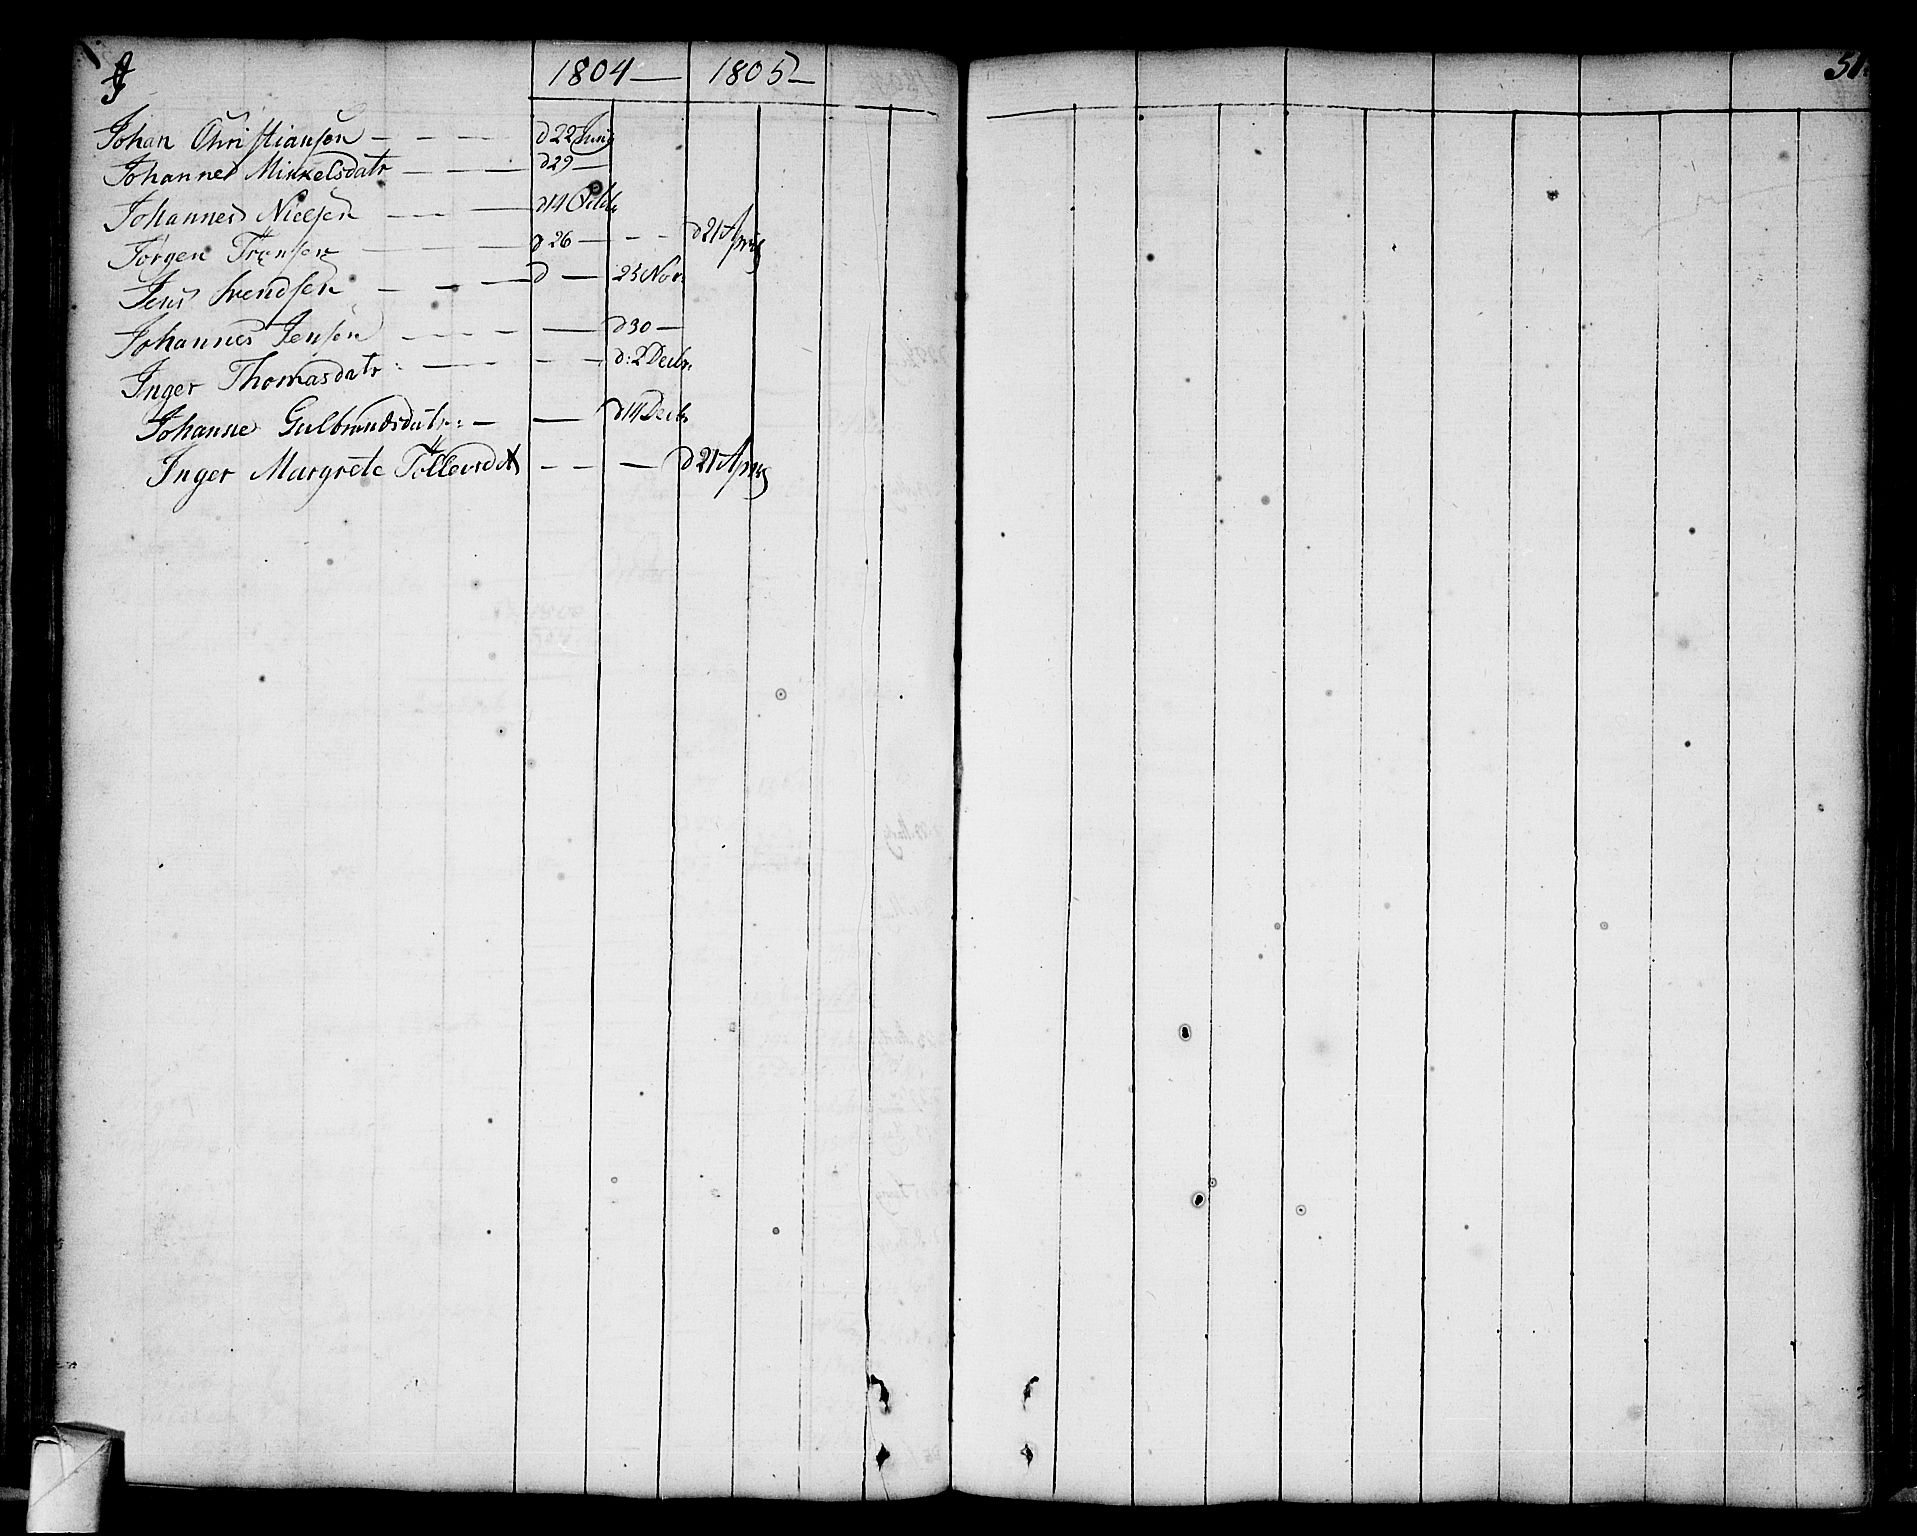 J 1804 — 1805 — 51.
Johan Christiansøn — — — d 22 Junij
Johanne Mikkelsdatr — — — d 29 —
Johannes Nielsen — — — d 14 Octbr
Jørgen — — d 26 — — — d 21 April
Jens Svendsen — — — d — 25 Novr
Johannes Jensøn — — — — d 30 —
Inger Thomasdatr: — — — — d: 2 Decbr.
Johanne Gulbrandsdatr: — — d 14 Decbr
Inger Margrete — — — d 21 April